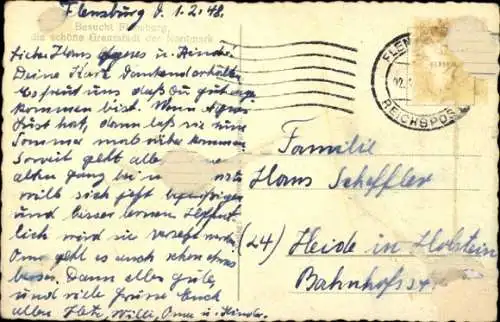 Flensburg d. 1.2.48.
Besucht Flensburg,
die schöne Grenzstadt der Nordmark
Liebe Hans Agnes u. Kinder.
Deine Karte dankend erhalten
Es freut uns, daß du gut
kommen bist. Wenn Agnes
Lust hat, dann laß sie im
Sommer mal rüber kommen.
Soweit geht alles
alten Gang bei
will sich jetzt
und besser lernen
lich wird sie versetzt
Oma geht es auch schon etwas
besser. Dann alles gute,
und viele Grüße Euch
allen Willi, Oma u. Kinder.
FLENS
REICHSPOS
Familie
Hans Scheffler
(24) Heide in Holstein
Bahnhofstr.